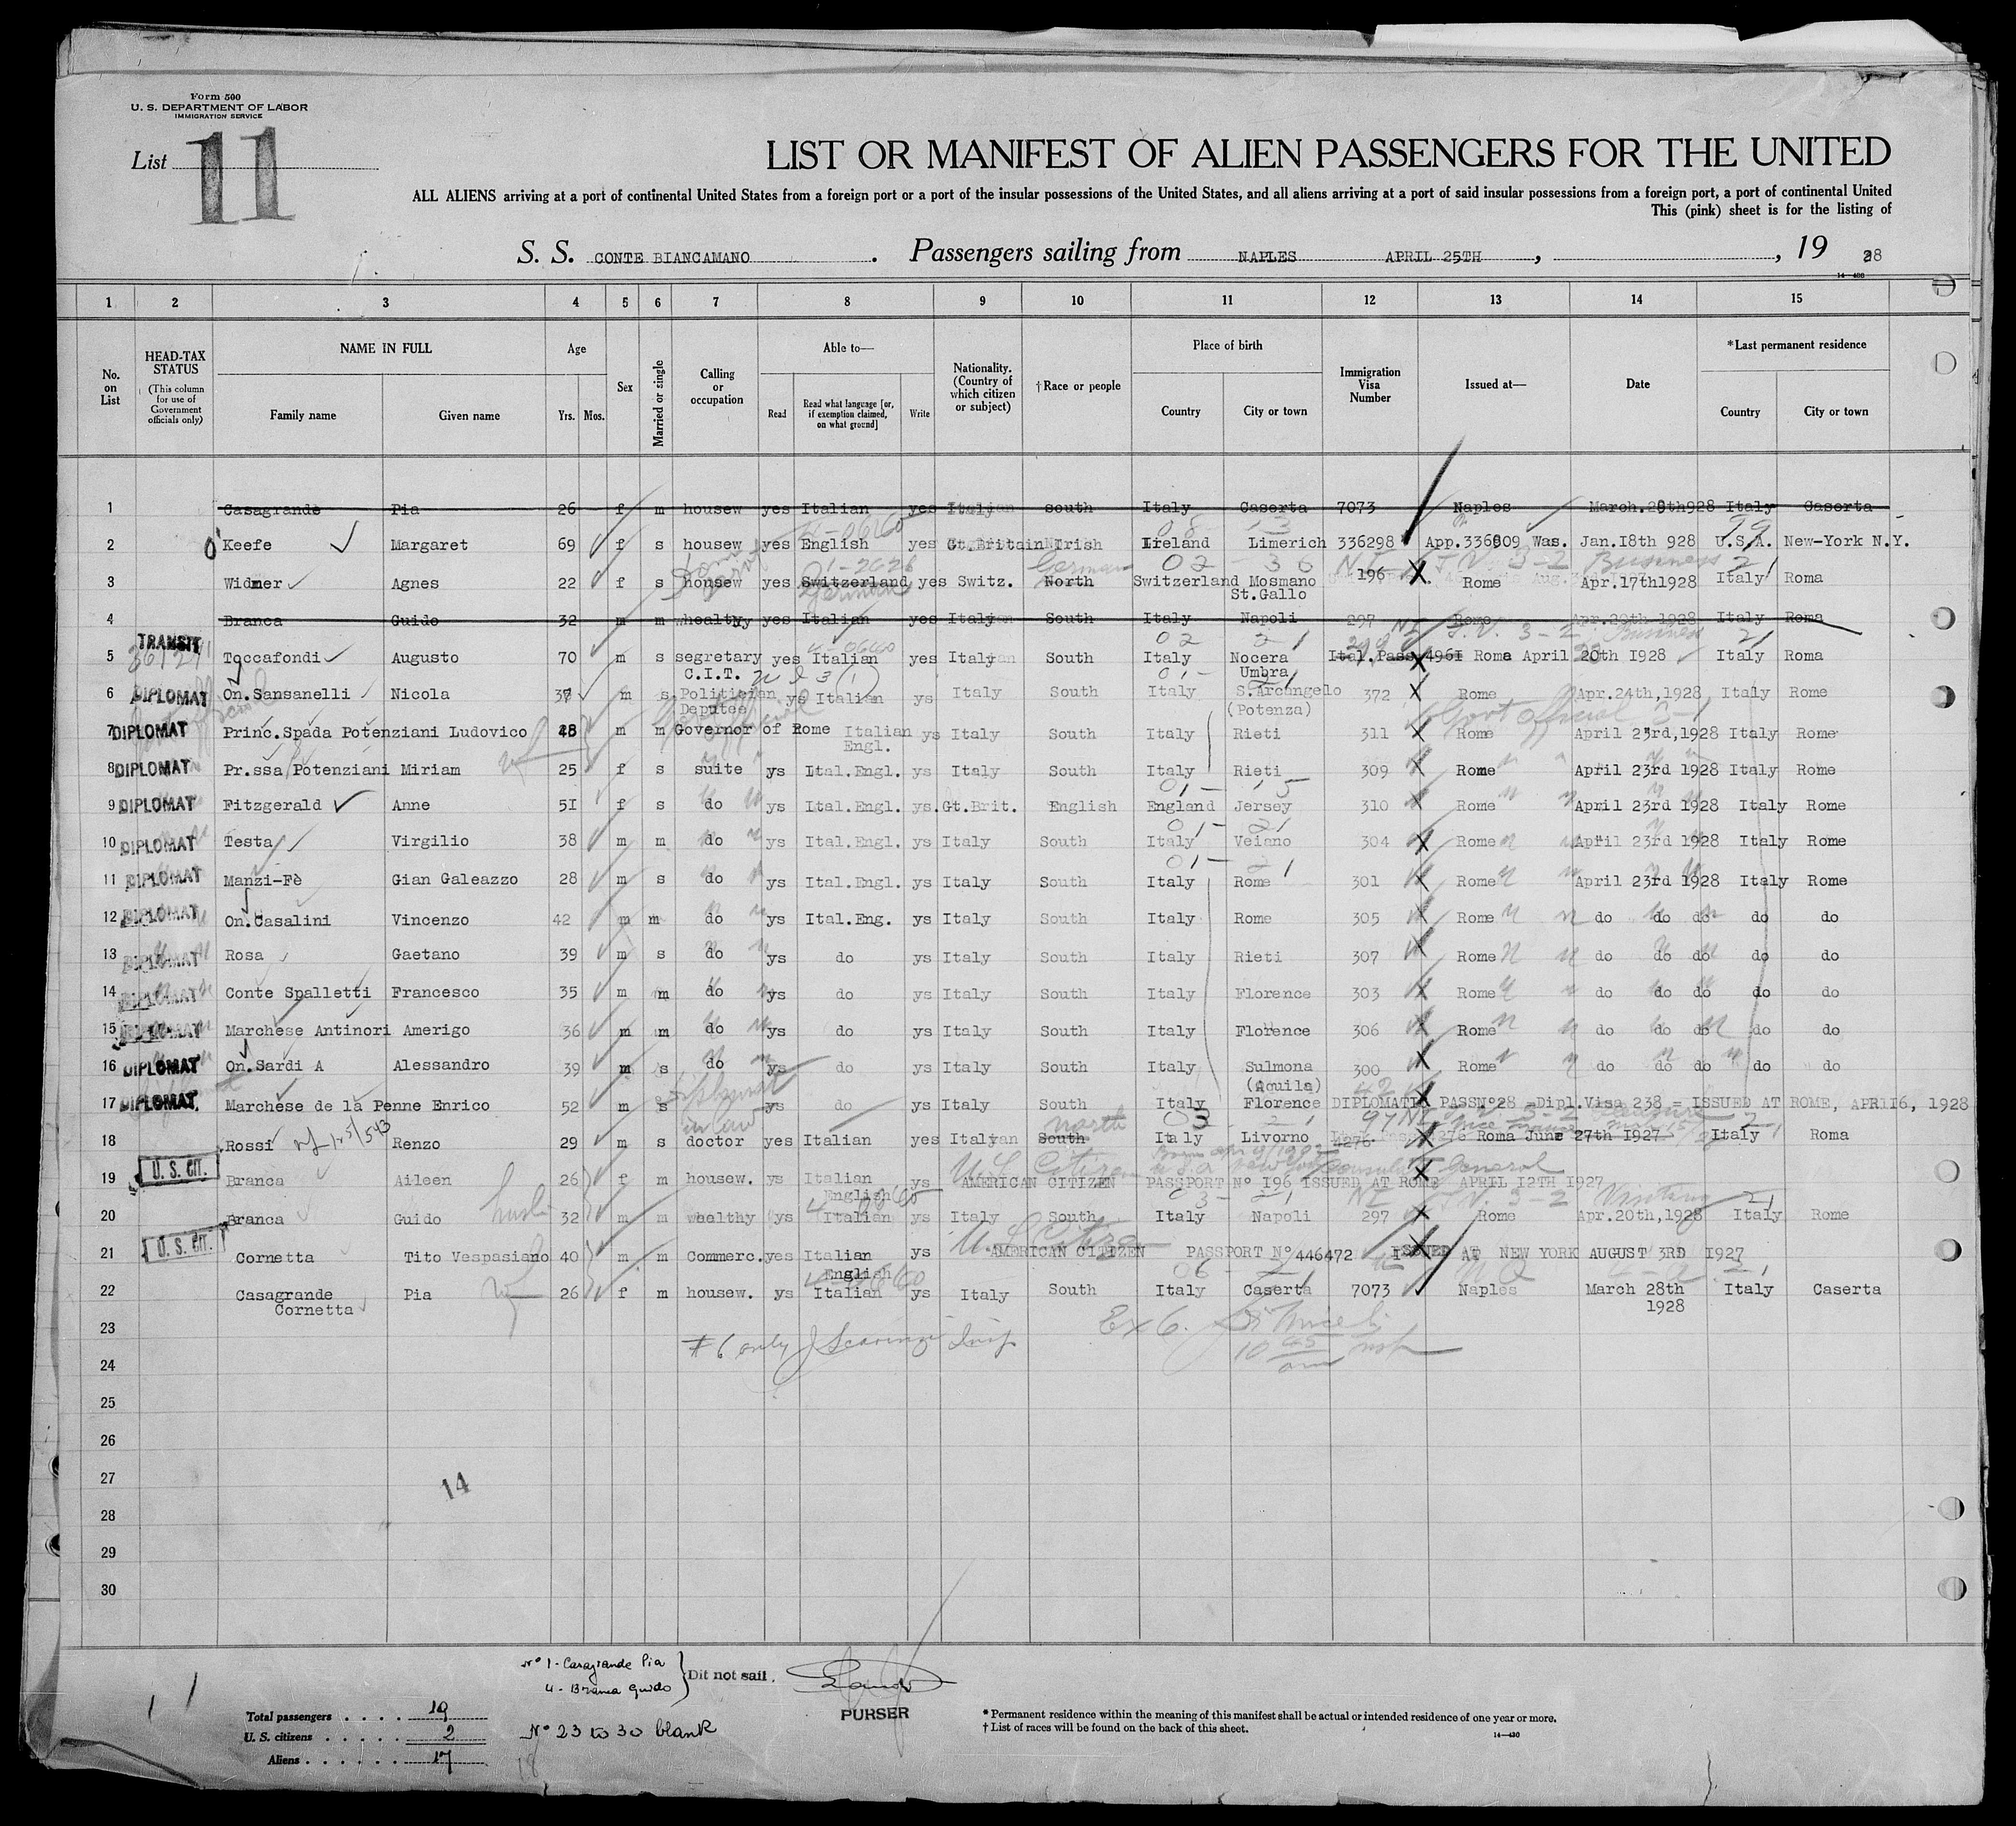 Form 500
U. S. DEPARTMENT OF LABOR
IMMIGRATION SERVICE
List 11
LIST OR MANIFEST OF ALIEN PASSENGERS FOR THE UNITED
ALL ALIENS arriving at a port of continental United States from a foreign port or a port of the insular possessions of the United States, and all aliens arriving at a port of said insular possessions from a foreign port, a port of continental United
This (pink) sheet is for the listing of
S. S. CONTE BIANCAMANO. Passengers sailing from NAPLES APRIL 25TH, , 19 28
1 2 3 4 5 6 7 8 9 10 11 12 13 14 15
No. on List
HEAD-TAX STATUS (This column for use of Government officials only)
NAME IN FULL Family name Given name
Age Yrs. Mos.
Sex
Married or single
Calling or occupation
Able to— Read Read what language [or, if exemption claimed, on what ground] Write
Nationality. (Country of which citizen or subject)
†Race or people
Place of birth Country City or town
Immigration Visa Number
Issued at—
Date
*Last permanent residence Country City or town
1 Casagrande Pia 26 f m housew yes Italian yes Italian south Italy Caserta 7073 Naples March.28th928 Italy Caserta
2 Keefe Margaret 69 f s housew yes English yes Gt.Britain Irish Ireland Limerich 336298 App.336809 Was. Jan.18th 928 U.S.A. New-York N.Y.
3 Widmer Agnes 22 f s housew yes Switzerland German yes Switz. North German Switzerland Mosmano St.Gallo 196 Rome Apr.17th1928 Italy Roma
4 Branca Guido 32 m m whealthy yes Italian yes Italy South Italy Napoli 297 Rome Apr.20th 1928 Italy Roma
5 TRANSIT Toccafondi Augusto 70 m s segretary C.I.T. yes Italian yes Italy South Italy Nocera Umbra Ital.Pass 4961 Roma April 20th 1928 Italy Roma
6 DIPLOMAT On.Sansanelli Nicola 37 m s Politician Deputee ys Italian ys Italy South Italy S.Arcangelo (Potenza) 372 Rome Apr.24th,1928 Italy Rome
7 DIPLOMAT Princ.Spada Potenziani Ludovico 48 m m Governor of Rome Italian Engl. ys Italy South Italy Rieti 311 Rome April 23rd,1928 Italy Rome
8 DIPLOMAT Pr.ssa Potenziani Miriam 25 f s suite ys Ital.Engl. ys Italy South Italy Rieti 309 Rome April 23rd 1928 Italy Rome
9 DIPLOMAT Fitzgerald Anne 51 f s do ys Ital.Engl. ys. Gt.Brit. English England Jersey 310 Rome April 23rd 1928 Italy Rome
10 DIPLOMAT Testa Virgilio 38 m m do ys Ital.Engl. ys Italy South Italy Veiano 304 Rome April 23rd 1928 Italy Rome
11 DIPLOMAT Manzi-Fè Gian Galeazzo 28 m s do ys Ital.Engl. ys Italy South Italy Rome 301 Rome April 23rd 1928 Italy Rome
12 DIPLOMAT On.Casalini Vincenzo 42 m m do ys Ital.Eng. ys Italy South Italy Rome 305 Rome do do do do do
13 DIPLOMAT Rosa Gaetano 39 m s do ys do ys Italy South Italy Rieti 307 Rome do do do do do
14 DIPLOMAT Conte Spalletti Francesco 35 m m do ys do ys Italy South Italy Florence 303 Rome do do do do do
15 DIPLOMAT Marchese Antinori Amerigo 36 m m do ys do ys Italy South Italy Florence 306 Rome do do do do do
16 DIPLOMAT On.Sardi A Alessandro 39 m s do ys do ys Italy South Italy Sulmona (Aquila) 300 Rome do do do do do
17 DIPLOMAT Marchese de la Penne Enrico 52 m s Diplomat ys do ys Italy South Italy Florence DIPLOMATIC PASSN°28 =Dipl.Visa 238 = ISSUED AT ROME, APRIL16, 1928
18 Rossi Renzo 29 m s doctor in law yes Italian yes Italy South north Italy Livorno 4276 Roma June 27th 1927 Italy Roma
19 U. S. CIT. Branca Aileen 26 f m housew. ys Italian English ys U S Citizen AMERICAN CITIZEN PASSPORT N° 196 ISSUED AT ROME APRIL 12TH 1927
20 Branca Guido 32 m m whealthy ys Italian ys Italy South Italy Napoli 297 Rome Apr.20th,1928 Italy Rome
21 U. S. CIT. Cornetta Tito Vespasiano 40 m m Commerc. yes Italian English ys U S Citizen AMERICAN CITIZEN PASSPORT N° 446472 ISSUED AT NEW YORK AUGUST 3RD 1927
22 Casagrande Cornetta Pia 26 f m housew. ys Italian ys Italy South Italy Caserta 7073 Naples March 28th 1928 Italy Caserta
23
24
25
26
27
28
29
30
14
N° 1 - Casagrande Pia
4 - Branca Guido
Dit not sail.
PURSER
Total passengers . . . . 19
U. S. citizens . . . . . 2
Aliens . . . . . . 17
N° 23 to 30 blank
18
* Permanent residence within the meaning of this manifest shall be actual or intended residence of one year or more.
† List of races will be found on the back of this sheet.
14—430